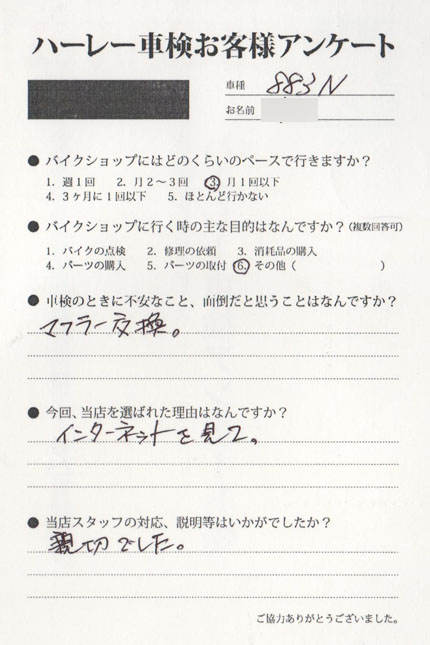 ハーレー車検お客様アンケート
車種 883N
お名前
● バイクショップにはどのくらいのペースで行きますか？
1. 週1回 2. 月2〜3回 3. 月1回以下
4. 3ヶ月に1回以下 5. ほとんど行かない
● バイクショップに行く時の主な目的はなんですか？(複数回答可)
1. バイクの点検 2. 修理の依頼 3. 消耗品の購入
4. パーツの購入 5. パーツの取付 6. その他 ( )
● 車検のときに不安なこと、面倒だと思うことはなんですか？
マフラー交換。
● 今回、当店を選ばれた理由はなんですか？
インターネットを見て。
● 当店スタッフの対応、説明等はいかがでしたか？
親切でした。
ご協力ありがとうございました。